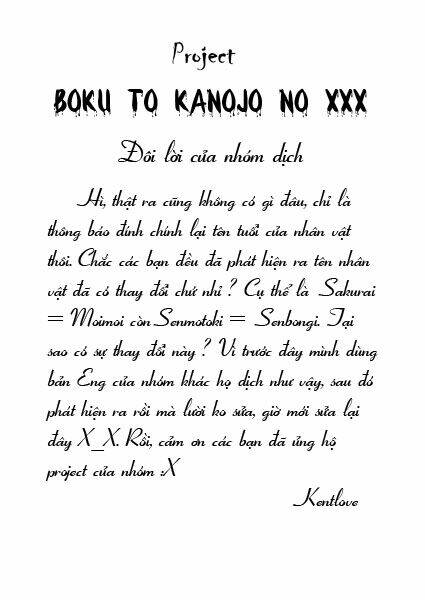 Project
BOKU TO KANOJO NO XXX
Đôi lời của nhóm dịch
Hì, thật ra cũng không có gì đâu, chỉ là
thông báo đính chính lại tên tuổi của nhân vật
thôi. Chắc các bạn đều đã phát hiện ra tên nhân
vật đã có thay đổi chứ nhỉ ? Cụ thể là Sakurai
= Moimoi còn Senmotoki = Senbongi. Tại
sao có sự thay đổi này ? Vì trước đây mình dùng
bản Eng của nhóm khác họ dịch như vậy, sau đó
phát hiện ra rồi mà lười ko sửa, giờ mới sửa lại
đây X_X. Rồi, cảm ơn các bạn đã ủng hộ
project của nhóm :X
Kentlove